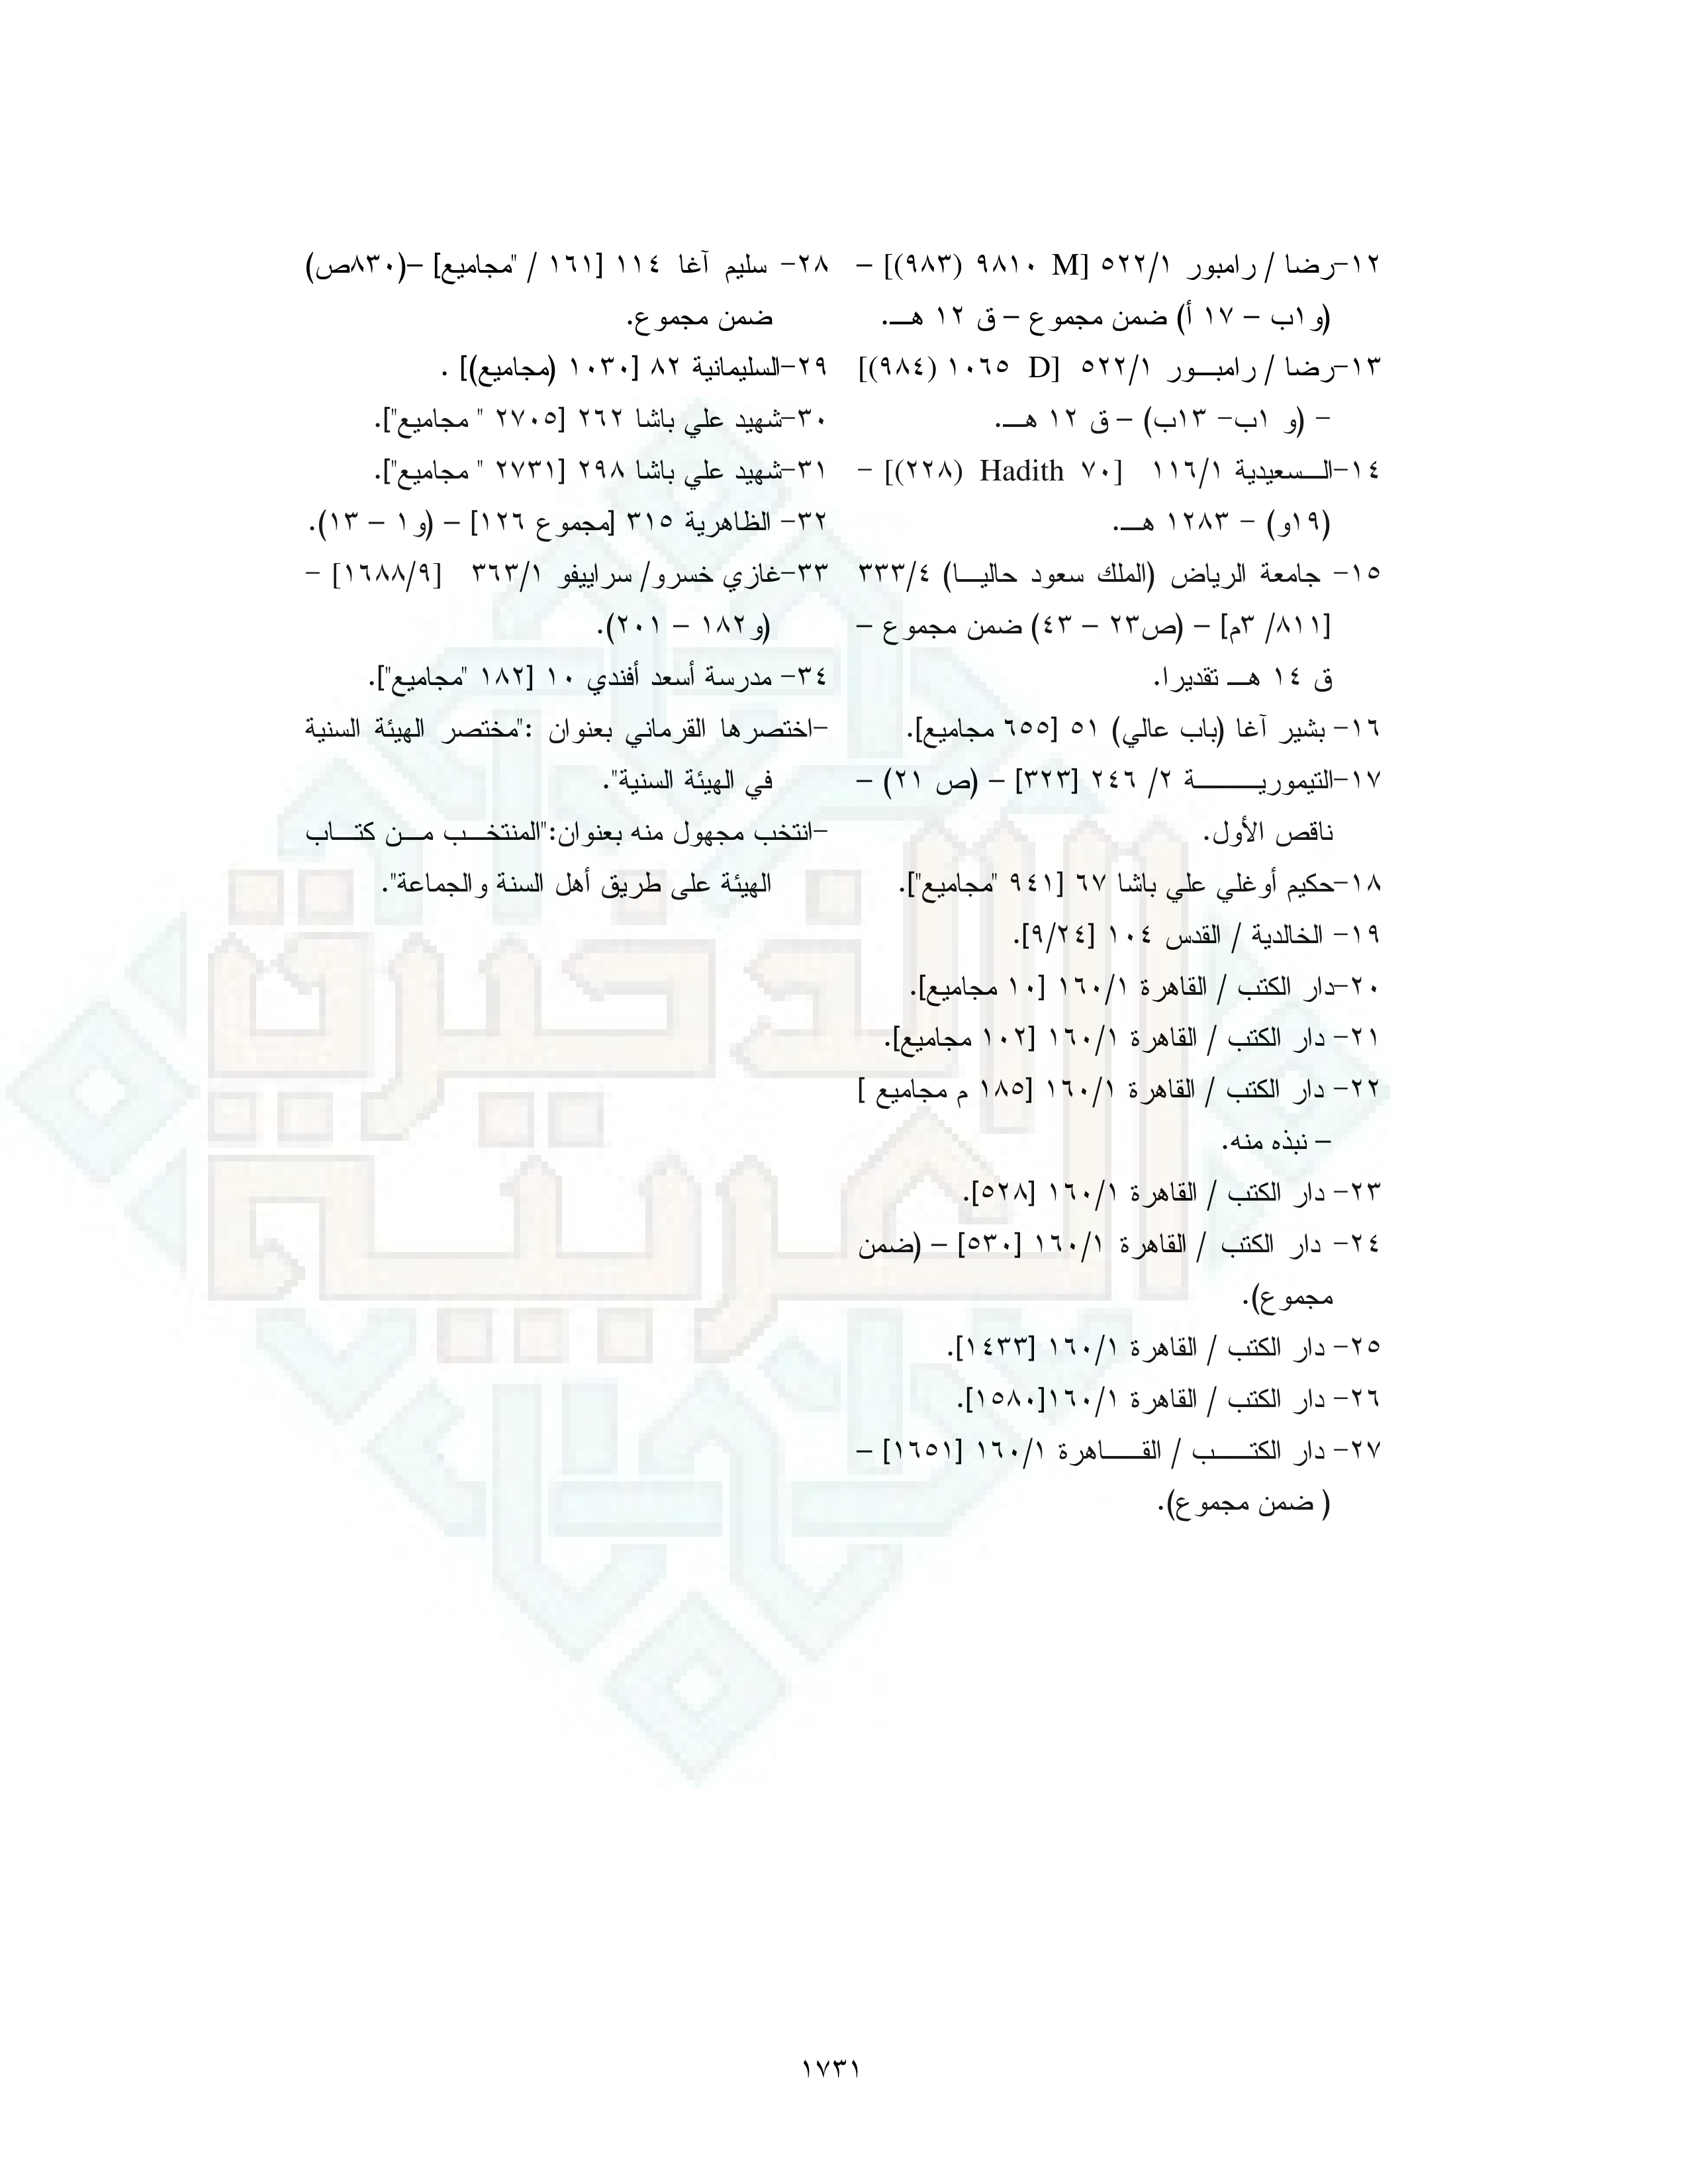 ١٢-رضا / رامبور ٥٢٢/١ [M ٩٨١٠ (٩٨٣)] –
(و١ب – ١٧ أ) ضمن مجموع – ق ١٢ هـ.
١٣-رضا / رامبـــور ٥٢٢/١ [D ١٠٦٥ (٩٨٤)]
- (و ١ب- ١٣ب) – ق ١٢ هـ.
١٤-الـسعيدية ١١٦/١ [Hadith ٧٠ (٢٢٨)] -
(١٩و) - ١٢٨٣ هـ.
١٥- جامعة الرياض (الملك سعود حاليـا) ٣٣٣/٤
[٨١١/ ٣م] – (ص٢٣ – ٤٣) ضمن مجموع –
ق ١٤ هـ تقديرا.
١٦- بشير آغا (باب عالي) ٥١ [٦٥٥ مجاميع].
١٧-التيموريـــــــة ٢/ ٢٤٦ [٣٢٣] – (ص ٢١) –
ناقص الأول.
١٨-حكيم أوغلي علي باشا ٦٧ [٩٤١ "مجاميع"].
١٩- الخالدية / القدس ١٠٤ [٩/٢٤].
٢٠-دار الكتب / القاهرة ١٦٠/١ [١٠ مجاميع].
٢١- دار الكتب / القاهرة ١٦٠/١ [١٠٢ مجاميع].
٢٢- دار الكتب / القاهرة ١٦٠/١ [١٨٥ م مجاميع ]
– نبذه منه.
٢٣- دار الكتب / القاهرة ١٦٠/١ [٥٢٨].
٢٤- دار الكتب / القاهرة ١٦٠/١ [٥٣٠] – (ضمن
مجموع).
٢٥- دار الكتب / القاهرة ١٦٠/١ [١٤٣٣].
٢٦- دار الكتب / القاهرة ١٦٠/١[١٥٨٠].
٢٧- دار الكتـــب / القـــاهرة ١٦٠/١ [١٦٥١] –
( ضمن مجموع).
٢٨- سليم آغا ١١٤ [١٦١ / "مجاميع] –(٨٣٠ص)
ضمن مجموع.
٢٩-السليمانية ٨٢ [١٠٣٠ (مجاميع)] .
٣٠-شهيد علي باشا ٢٦٢ [٢٧٠٥ " مجاميع"].
٣١-شهيد علي باشا ٢٩٨ [٢٧٣١ " مجاميع"].
٣٢- الظاهرية ٣١٥ [مجموع ١٢٦] – (و١ – ١٣).
٣٣-غازي خسرو/ سراييفو ٣٦٣/١ [١٦٨٨/٩] -
(و١٨٢ – ٢٠١).
٣٤- مدرسة أسعد أفندي ١٠ [١٨٢ "مجاميع"].
-اختصرها القرماني بعنوان :"مختصر الهيئة السنية
في الهيئة السنية".
-انتخب مجهول منه بعنوان:"المنتخـب مـن كتـاب
الهيئة على طريق أهل السنة والجماعة".
الذخيرة
العربية
١٧٣١